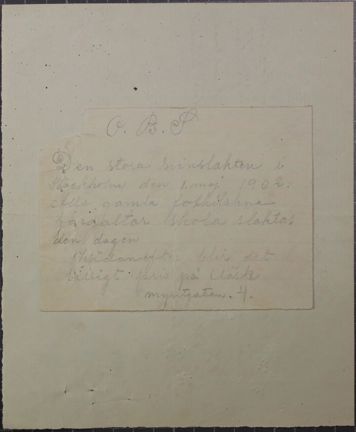 O. B. S
Den stora svinslakten i
Stockholm den 1. maj 1902.
Alla gamla
skola slaktas
den dagen
blir det
billigt pris på
myntgatan. 4.